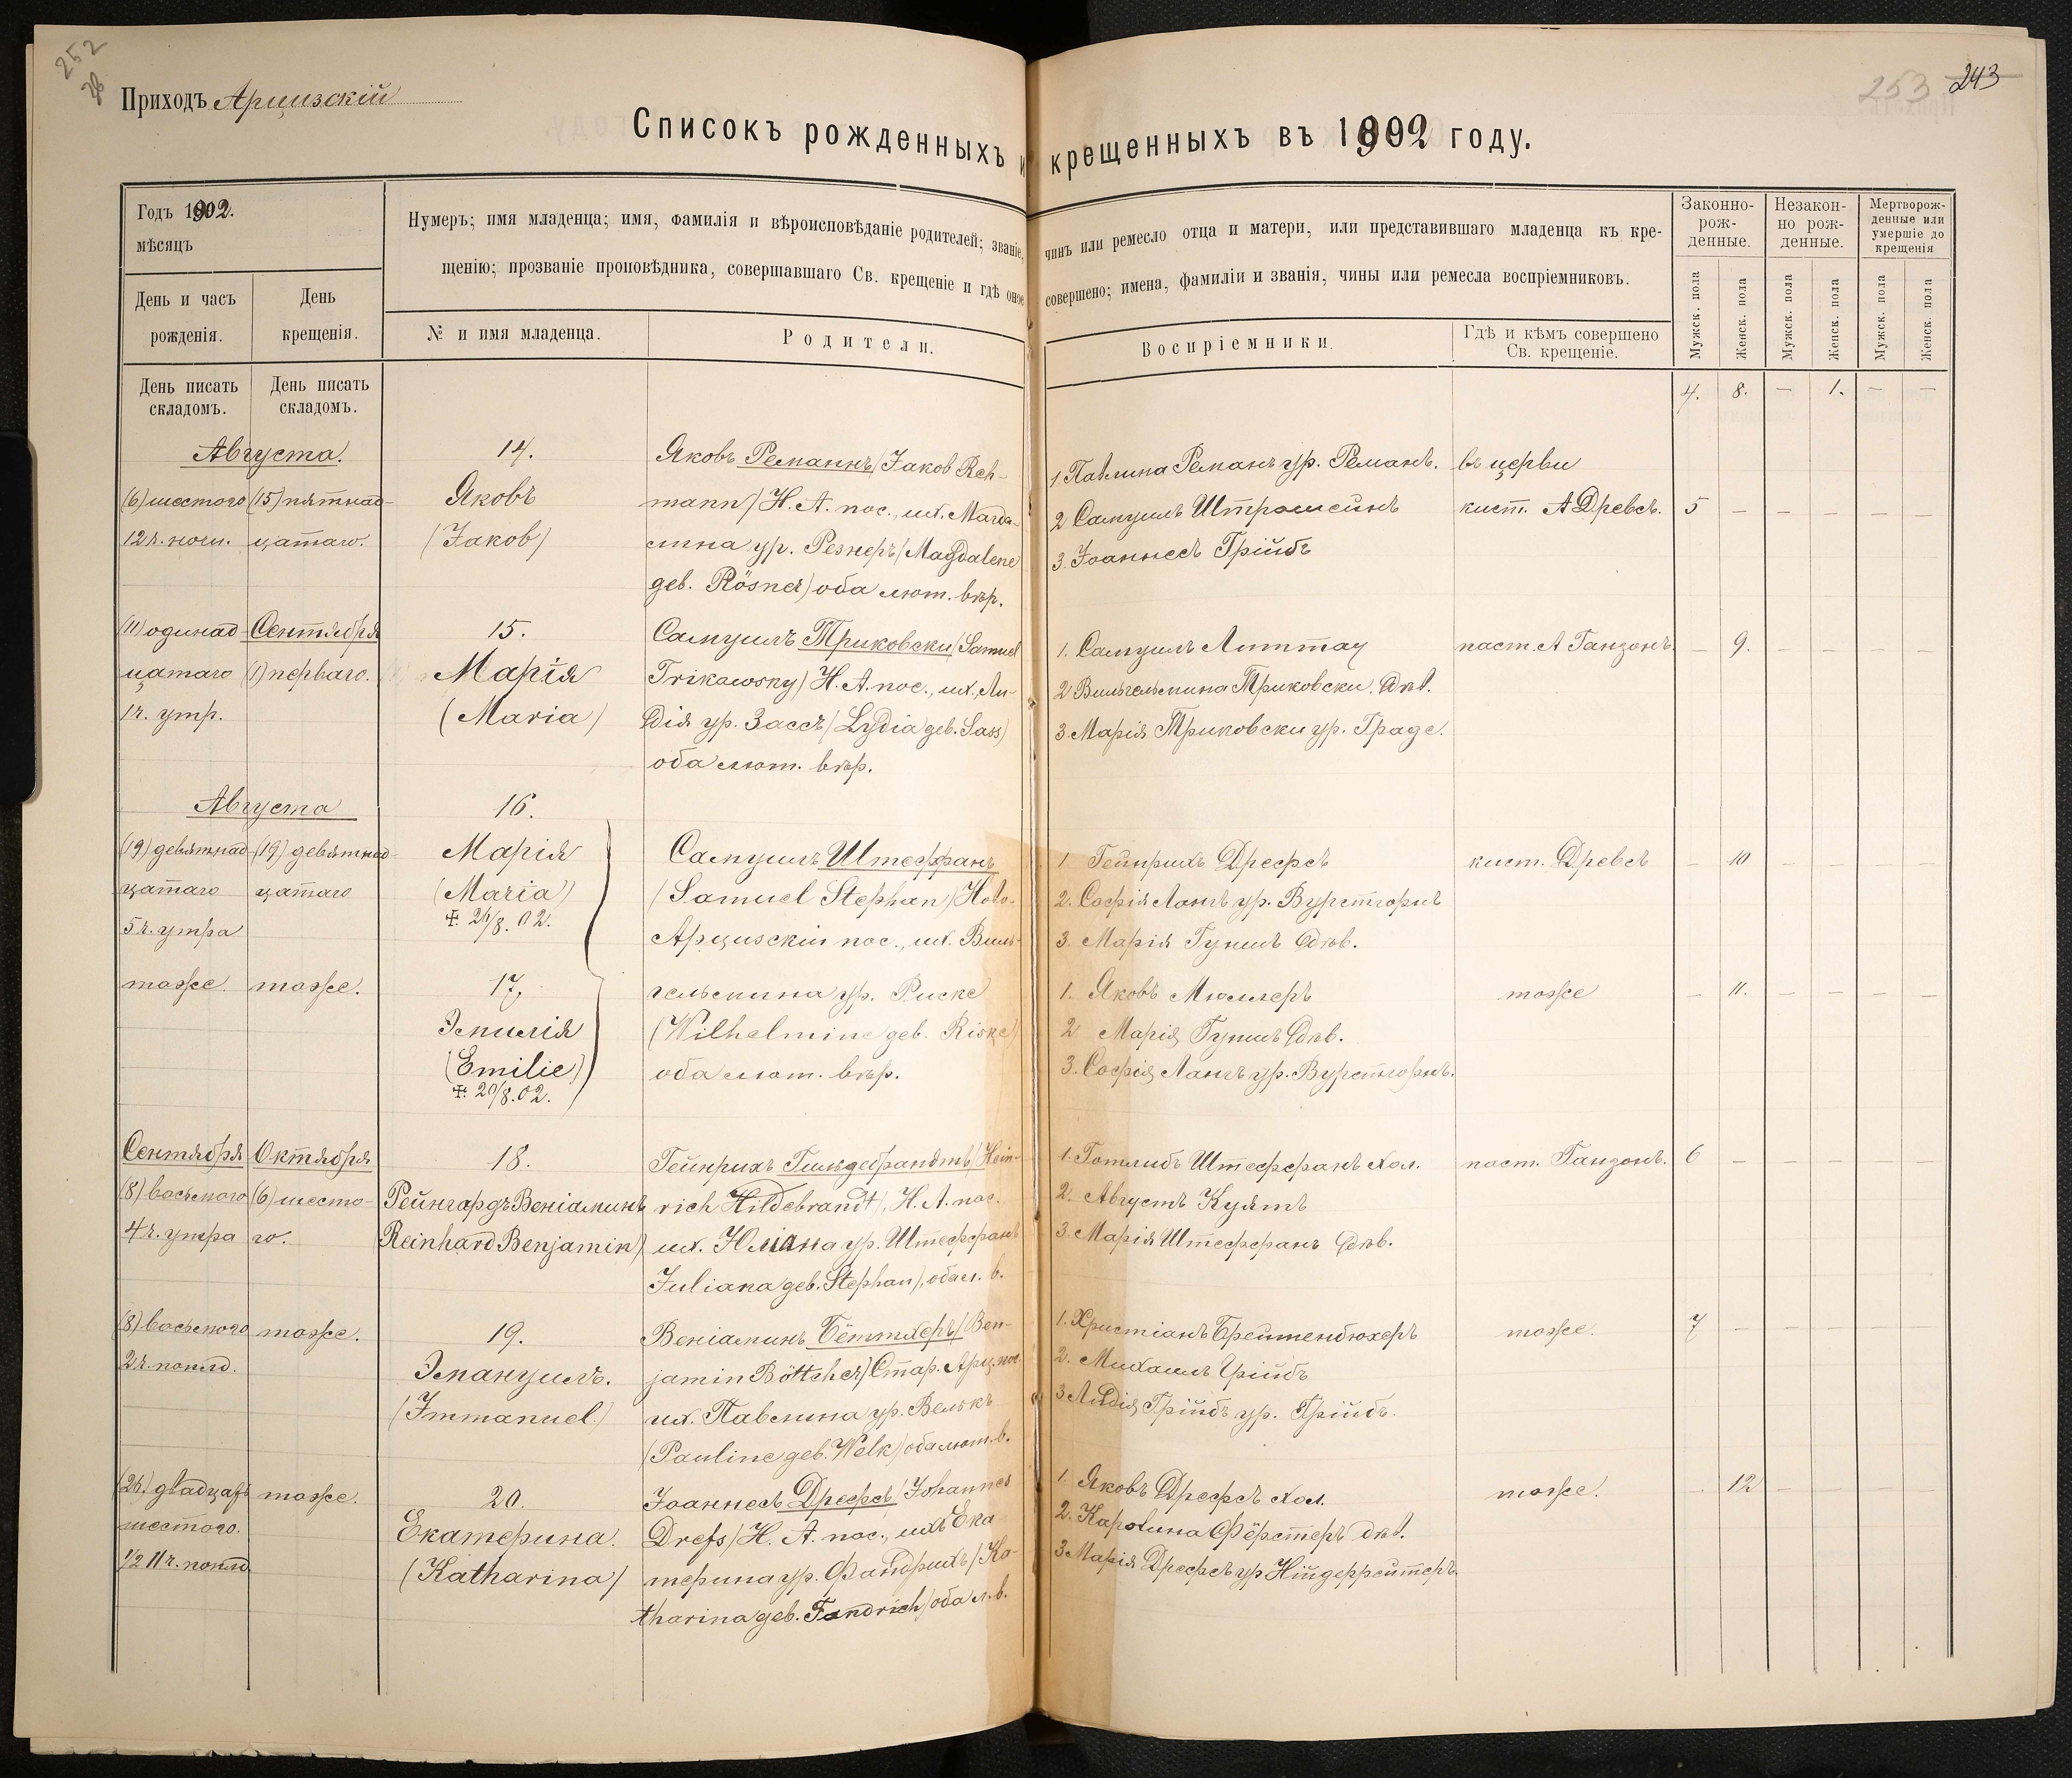 252
Приходъ Арцизскій
253 243
Списокъ рожденныхъ и крещенныхъ въ 1902 году.
Годъ 1902.
мѣсяцъ
Нумеръ; имя младенца; имя, фамилія и вѣроисповѣданіе родителей; званіе, чинъ или ремесло отца и матери, или представившаго младенца къ кре-
щенію; прозваніе проповѣдника, совершавшаго Св. крещеніе и гдѣ оное совершено; имена, фамиліи и званія, чины или ремесла воспріемниковъ.
Законно-
рож-
денные.
Незакон-
но рож-
денные.
Мертворож-
денные или
умершіе до
крещенія
День и часъ
рожденія.
День
крещенія.
№ и имя младенца.
Родители.
Воспріемники.
Гдѣ и кѣмъ совершено
Св. крещеніе.
Мужск. пола
Женск. пола
Мужск. пола
Женск. пола
Мужск. пола
Женск. пола
День писать
складомъ.
День писать
складомъ.
4. 8. — 1. — —
Августа.
(6) шестого
12 ч. ночи.
(15) пятнад-
цатаго.
14.
Яковъ
(Jakob)
Яковъ Реманнъ (Jakob Reh-
mann) Н. А. пос., их. Магда-
лина ур. Резнеръ (Magdalene
geb. Rösner) оба лют. вѣр.
1. Павлина Реманъ ур. Реманъ.
2 Самуилъ Штрошеинъ
3. Іоаннесъ Грійбъ
въ церкви
кист. А Древсъ.
5 — — — — —
(11) одинад-
цатаго
1 ч. утр.
Сентября
(1) перваго.
15.
Марія
(Maria)
Самуилъ Триковски (Samuel
Trikowsky) Н. А. пос., их. Ли-
дія ур. Зассъ (Lydia geb. Sass)
оба лют. вѣр.
1. Самуилъ Литтау
2 Вильгельмина Триковски. дѣв.
3. Марія Триковски ур. Граде.
паст. А Ганзонъ.
— 9. — — — —
Августа
(19) девятнад-
цатаго
5 ч. утра
(19) девятнад-
цатаго
16.
Марія
(Maria)
✠ 21/8. 02.
Самуилъ Штеффанъ
(Samuel Stephan) Ново-
Арцизскій пос., их. Виль-
1 Гейнрихъ Дрефсъ
2. Софія Лангъ ур. Вурстгорнъ
3. Марія дѣв.
кист. Древсъ
— 10 — — — —
тоже.
тоже.
17.
Эмилія
(Emilie)
✠ 20/8. 02.
гельмина ур. Риске
(Wilhelmine geb. Riske)
оба лют. вѣр.
1. Яковъ Мюллеръ
2 Марія дѣв.
3. Софія Лангъ ур. Вурстгорнъ.
тоже
— 11. — — — —
Сентября
(8) восьмого
4 ч. утра
Октября
(6) шесто-
го.
18.
Рейнгардъ Веніаминъ
Reinhard Benjamin)
Гейнрихъ Гильдебрандтъ (Hein-
rich Hildebrandt), Н. А. пос.
их. Юліана ур. Штеффанъ
Juliana geb. Stephan), оба л. в.
1. Готлибъ Штеффанъ хол.
2. Августъ Кулятъ
3. Марія Штеффанъ дѣв.
паст. Ганзонъ.
6 — — — — —
(8) восьмого
2 ч. попол.
тоже.
19.
Эмануилъ.
(Immanuel)
Веніаминъ Бёттхеръ (Ben-
jamin Böttcher) Стар. Арц. пос.
их. Павлина ур. Велькъ
(Pauline geb. Welk) оба лют. в.
1. Христіанъ Брейтенбюхеръ
2. Михаилъ Грійбъ
3 Лидія Грійбъ ур. Грійбъ.
тоже.
7 — — — — —
(26.) двадцать
шестого.
1/2 11 ч. попол.
тоже.
20.
Екатерина.
(Katharina)
Іоаннесъ Дрефсъ (Johannes
Drefs) Н. А. пос., ихъ Ека-
терина ур. Фандрихъ (Ka-
tharina geb. Fandrich) оба л. в.
1. Яковъ Дрефсъ хол.
2. Каролина Фёрстеръ дѣв.
3 Марія Дрефсъ ур Нійдеррейтеръ.
тоже.
— 12 — — — —